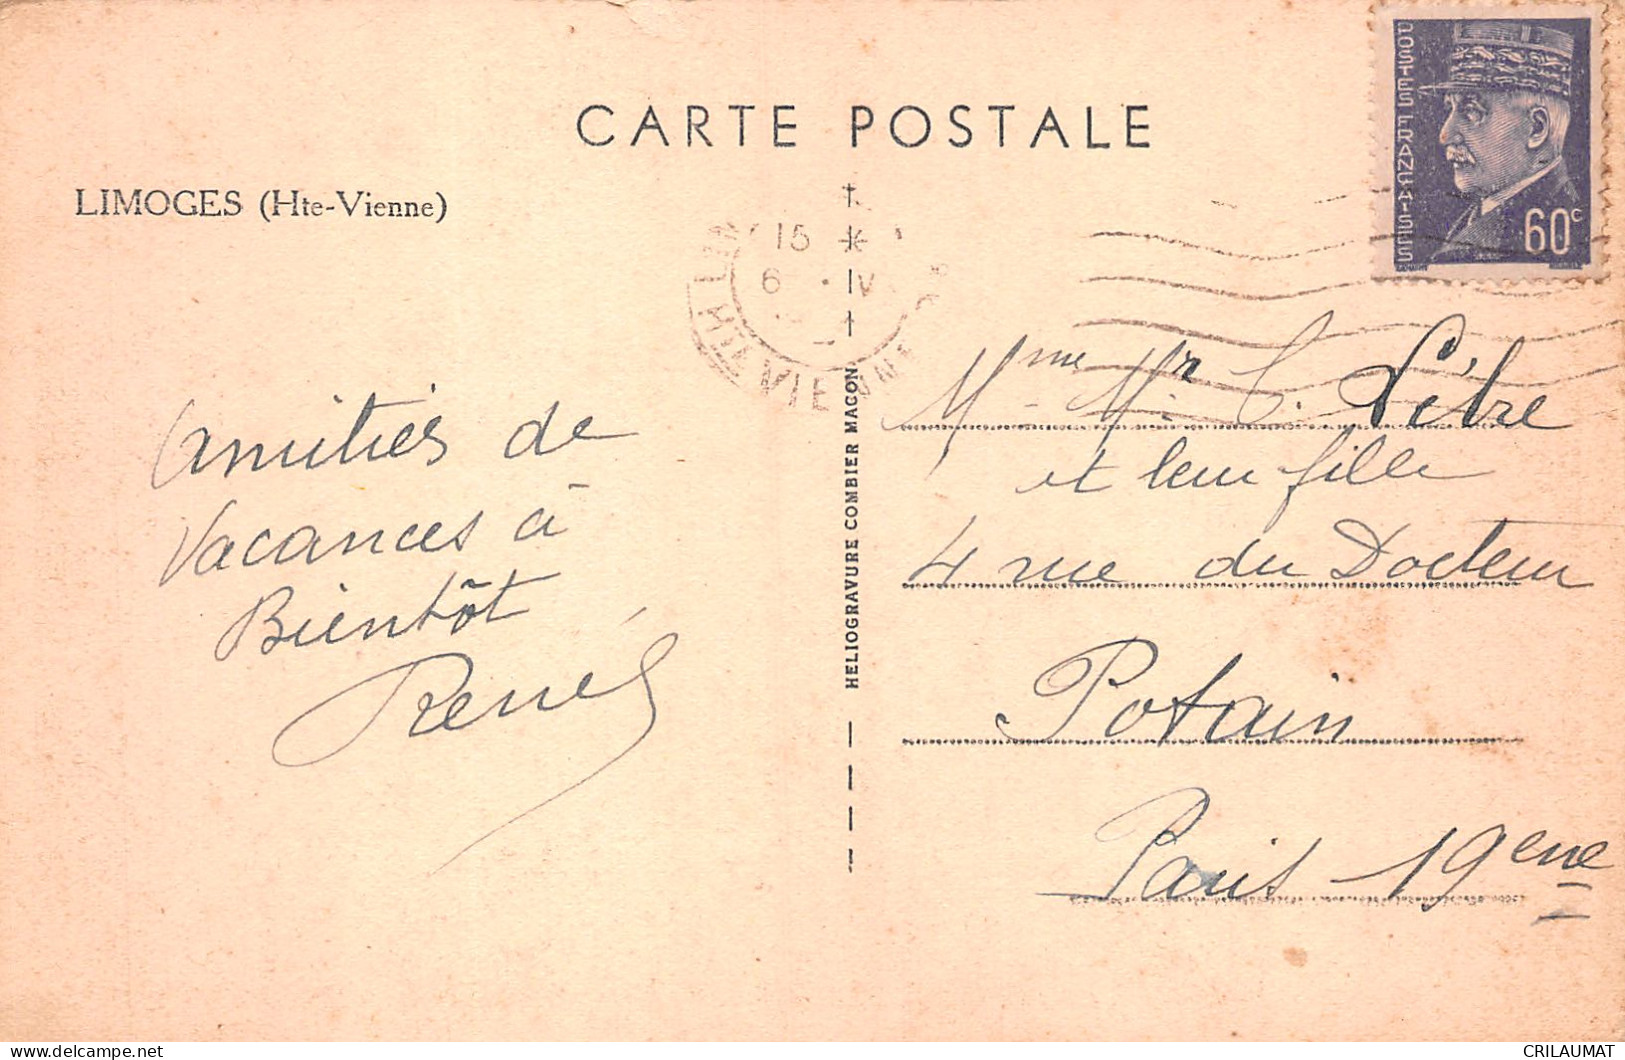 CARTE POSTALE
LIMOGES (Hte-Vienne)
POSTES FRANÇAISES
60c
15 *
6 · IV
HTE VIENNE
HELIOGRAVURE COMBIER MACON
Amitiés de
Vacances à
Bientôt
René
Mme Mr C.
et leur fille
4 rue du Docteur
Potain
Paris 19eme
CRILAUMAT